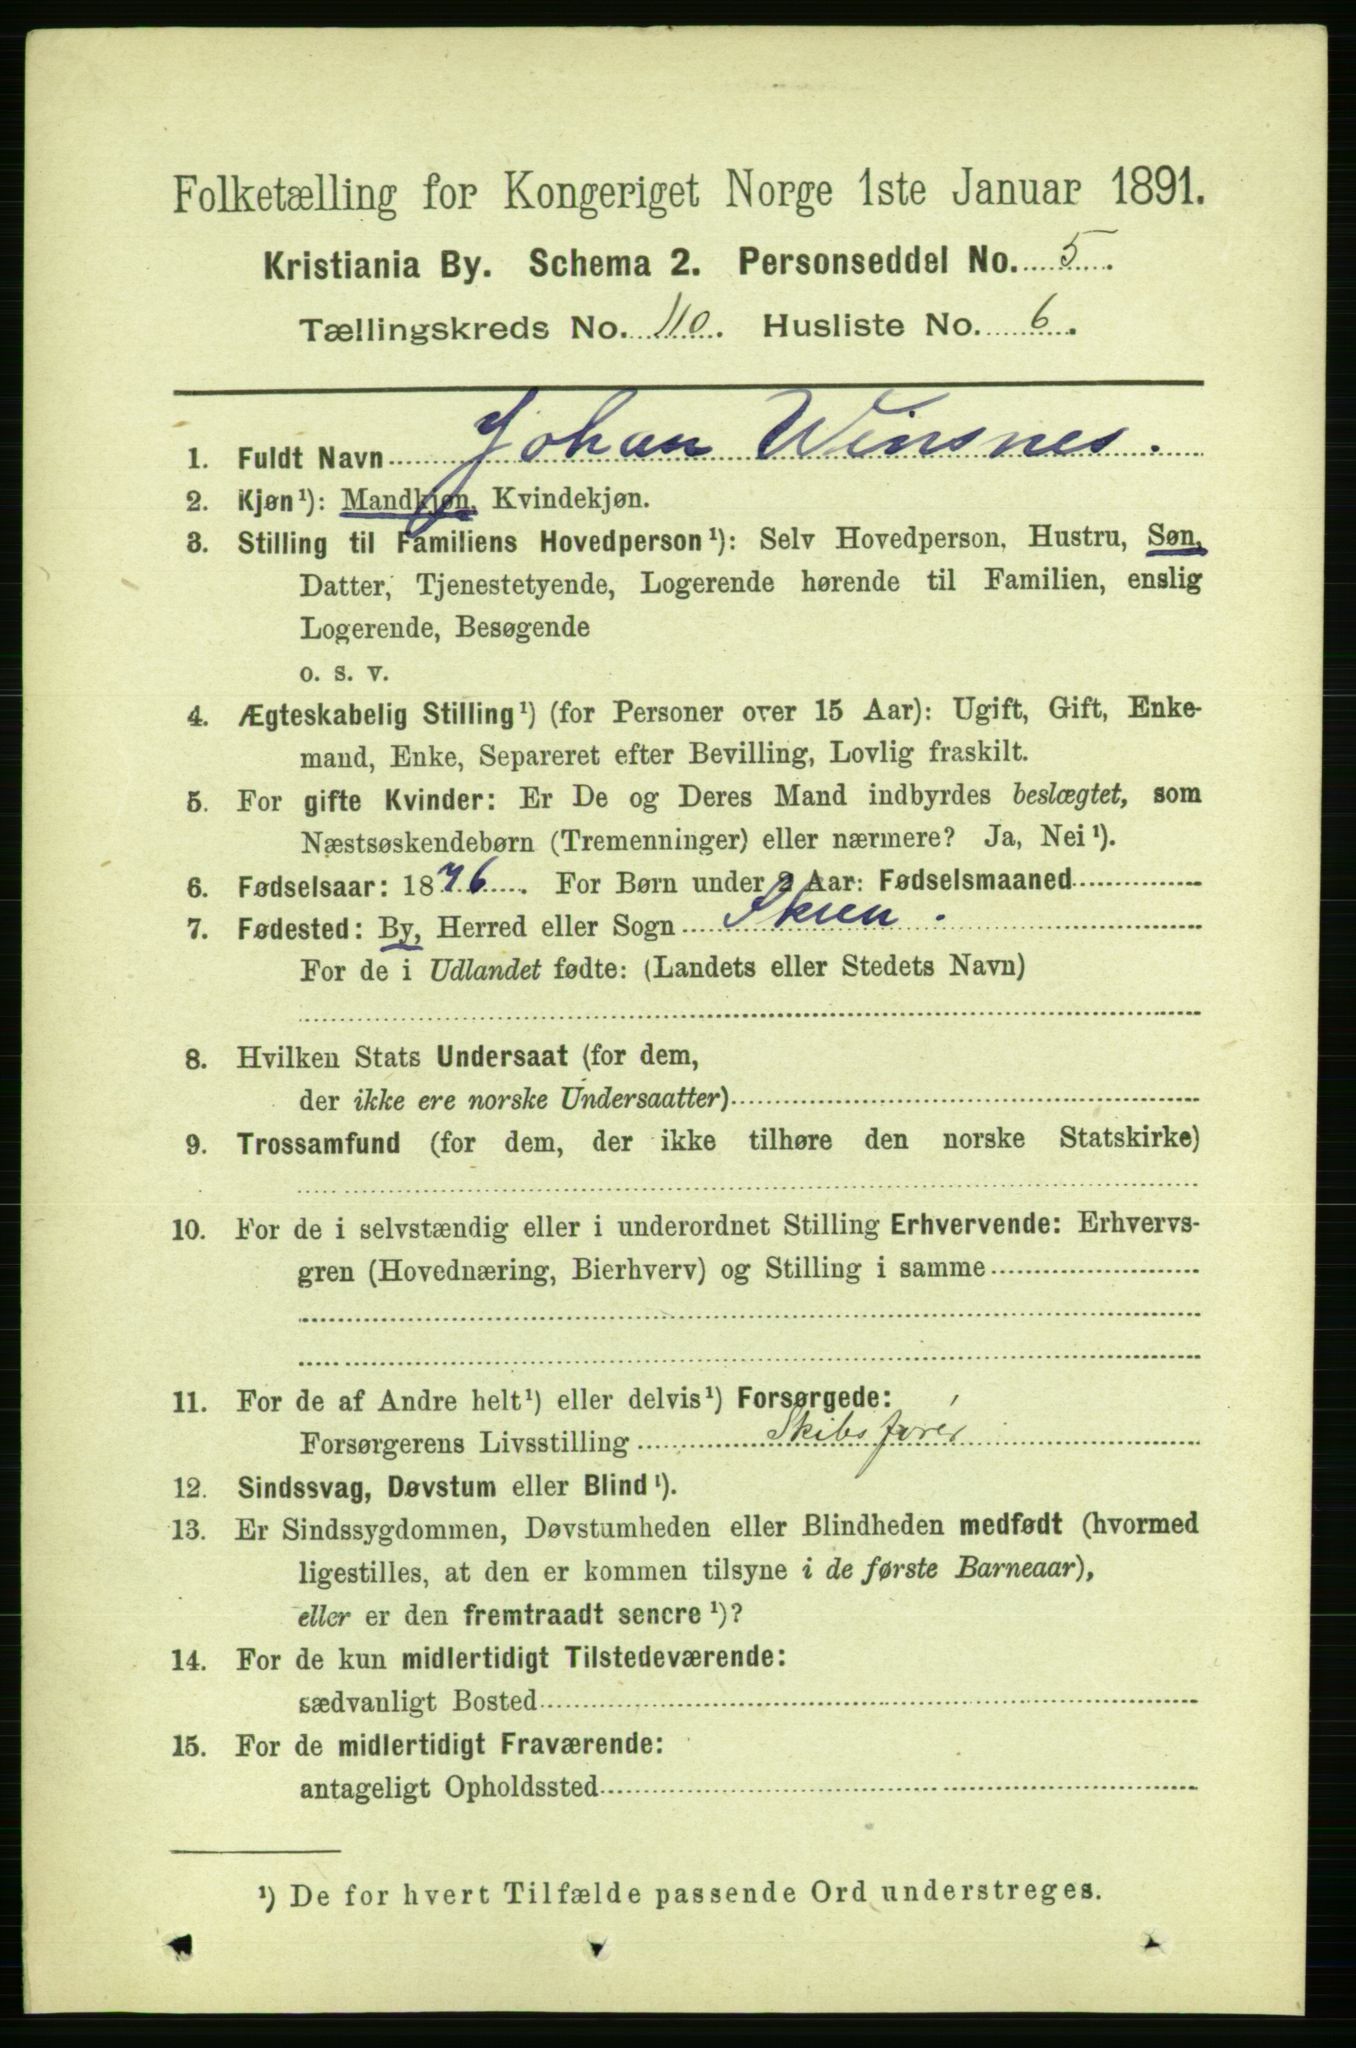 Folketælling for Kongeriget Norge 1ste Januar 1891.
Kristiania By. Schema 2. Personseddel No. 5.
Tællingskreds No. 110. Husliste No. 6.
1. Fuldt Navn Johan Winsnes.
2. Kjøn¹): Mandkjøn, Kvindekjøn.
3. Stilling til Familiens Hovedperson¹): Selv Hovedperson, Hustru, Søn,
Datter, Tjenestetyende, Logerende hørende til Familien, enslig
Logerende, Besøgende
o. s. v.
4. Ægteskabelig Stilling¹) (for Personer over 15 Aar): Ugift, Gift, Enke-
mand, Enke, Separeret efter Bevilling, Lovlig fraskilt.
5. For gifte Kvinder: Er De og Deres Mand indbyrdes beslægtet, som
Næstsøskendebørn (Tremenninger) eller nærmere? Ja, Nei¹).
6. Fødselsaar: 1876. For Børn under 2 Aar: Fødselsmaaned
7. Fødested: By, Herred eller Sogn Skien.
For de i Udlandet fødte: (Landets eller Stedets Navn)
8. Hvilken Stats Undersaat (for dem,
der ikke ere norske Undersaatter)
9. Trossamfund (for dem, der ikke tilhøre den norske Statskirke)
10. For de i selvstændig eller i underordnet Stilling Erhvervende: Erhvervs-
gren (Hovednæring, Bierhverv) og Stilling i samme
11. For de af Andre helt¹) eller delvis¹) Forsørgede:
Forsørgerens Livsstilling Skibsfører
12. Sindssvag, Døvstum eller Blind¹).
13. Er Sindssygdommen, Døvstumheden eller Blindheden medfødt (hvormed
ligestilles, at den er kommen tilsyne i de første Barneaar),
eller er den fremtraadt senere¹)?
14. For de kun midlertidigt Tilstedeværende:
sædvanligt Bosted
15. For de midlertidigt Fraværende:
antageligt Opholdssted
¹) De for hvert Tilfælde passende Ord understreges.